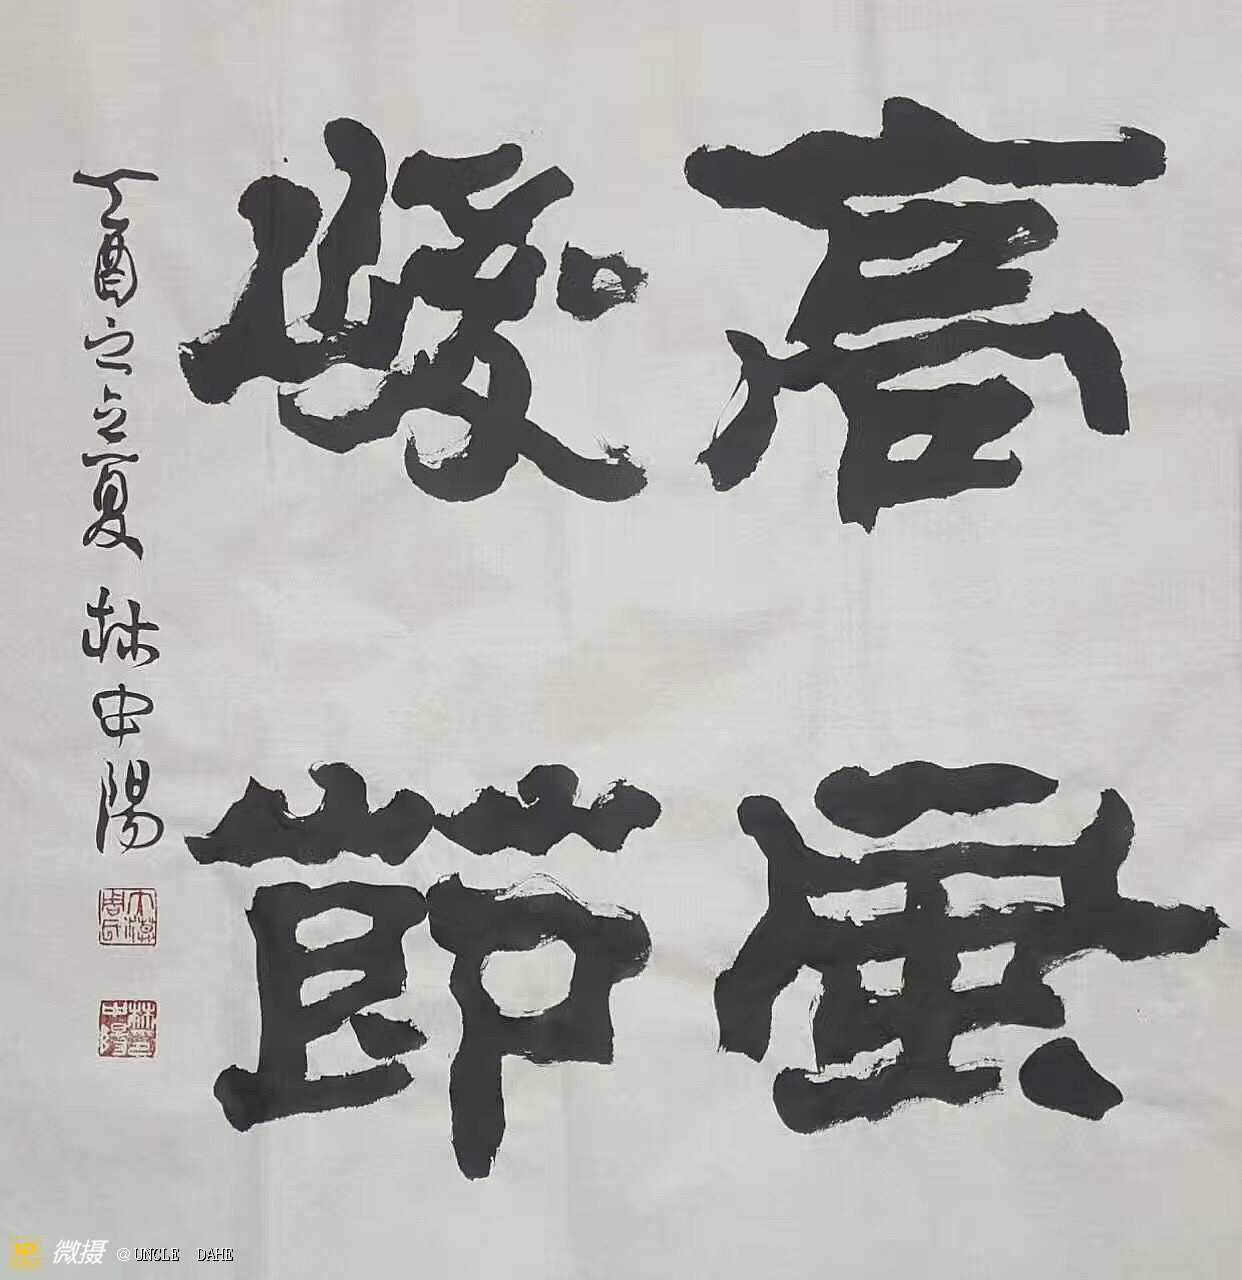 高風
峻節
丁酉之立夏 林中陽
NP 微摄 @UNCLE DAHE